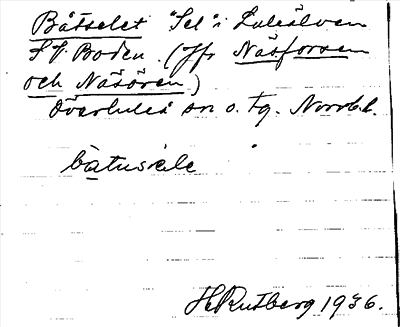 Båtselet "Sel" i Luleälven
S J. Boden. (Jfr Näsforsen
och Näsören)
Överluleå sn o. tg. Norrb.l.
båtusele
H Rutberg 1936.